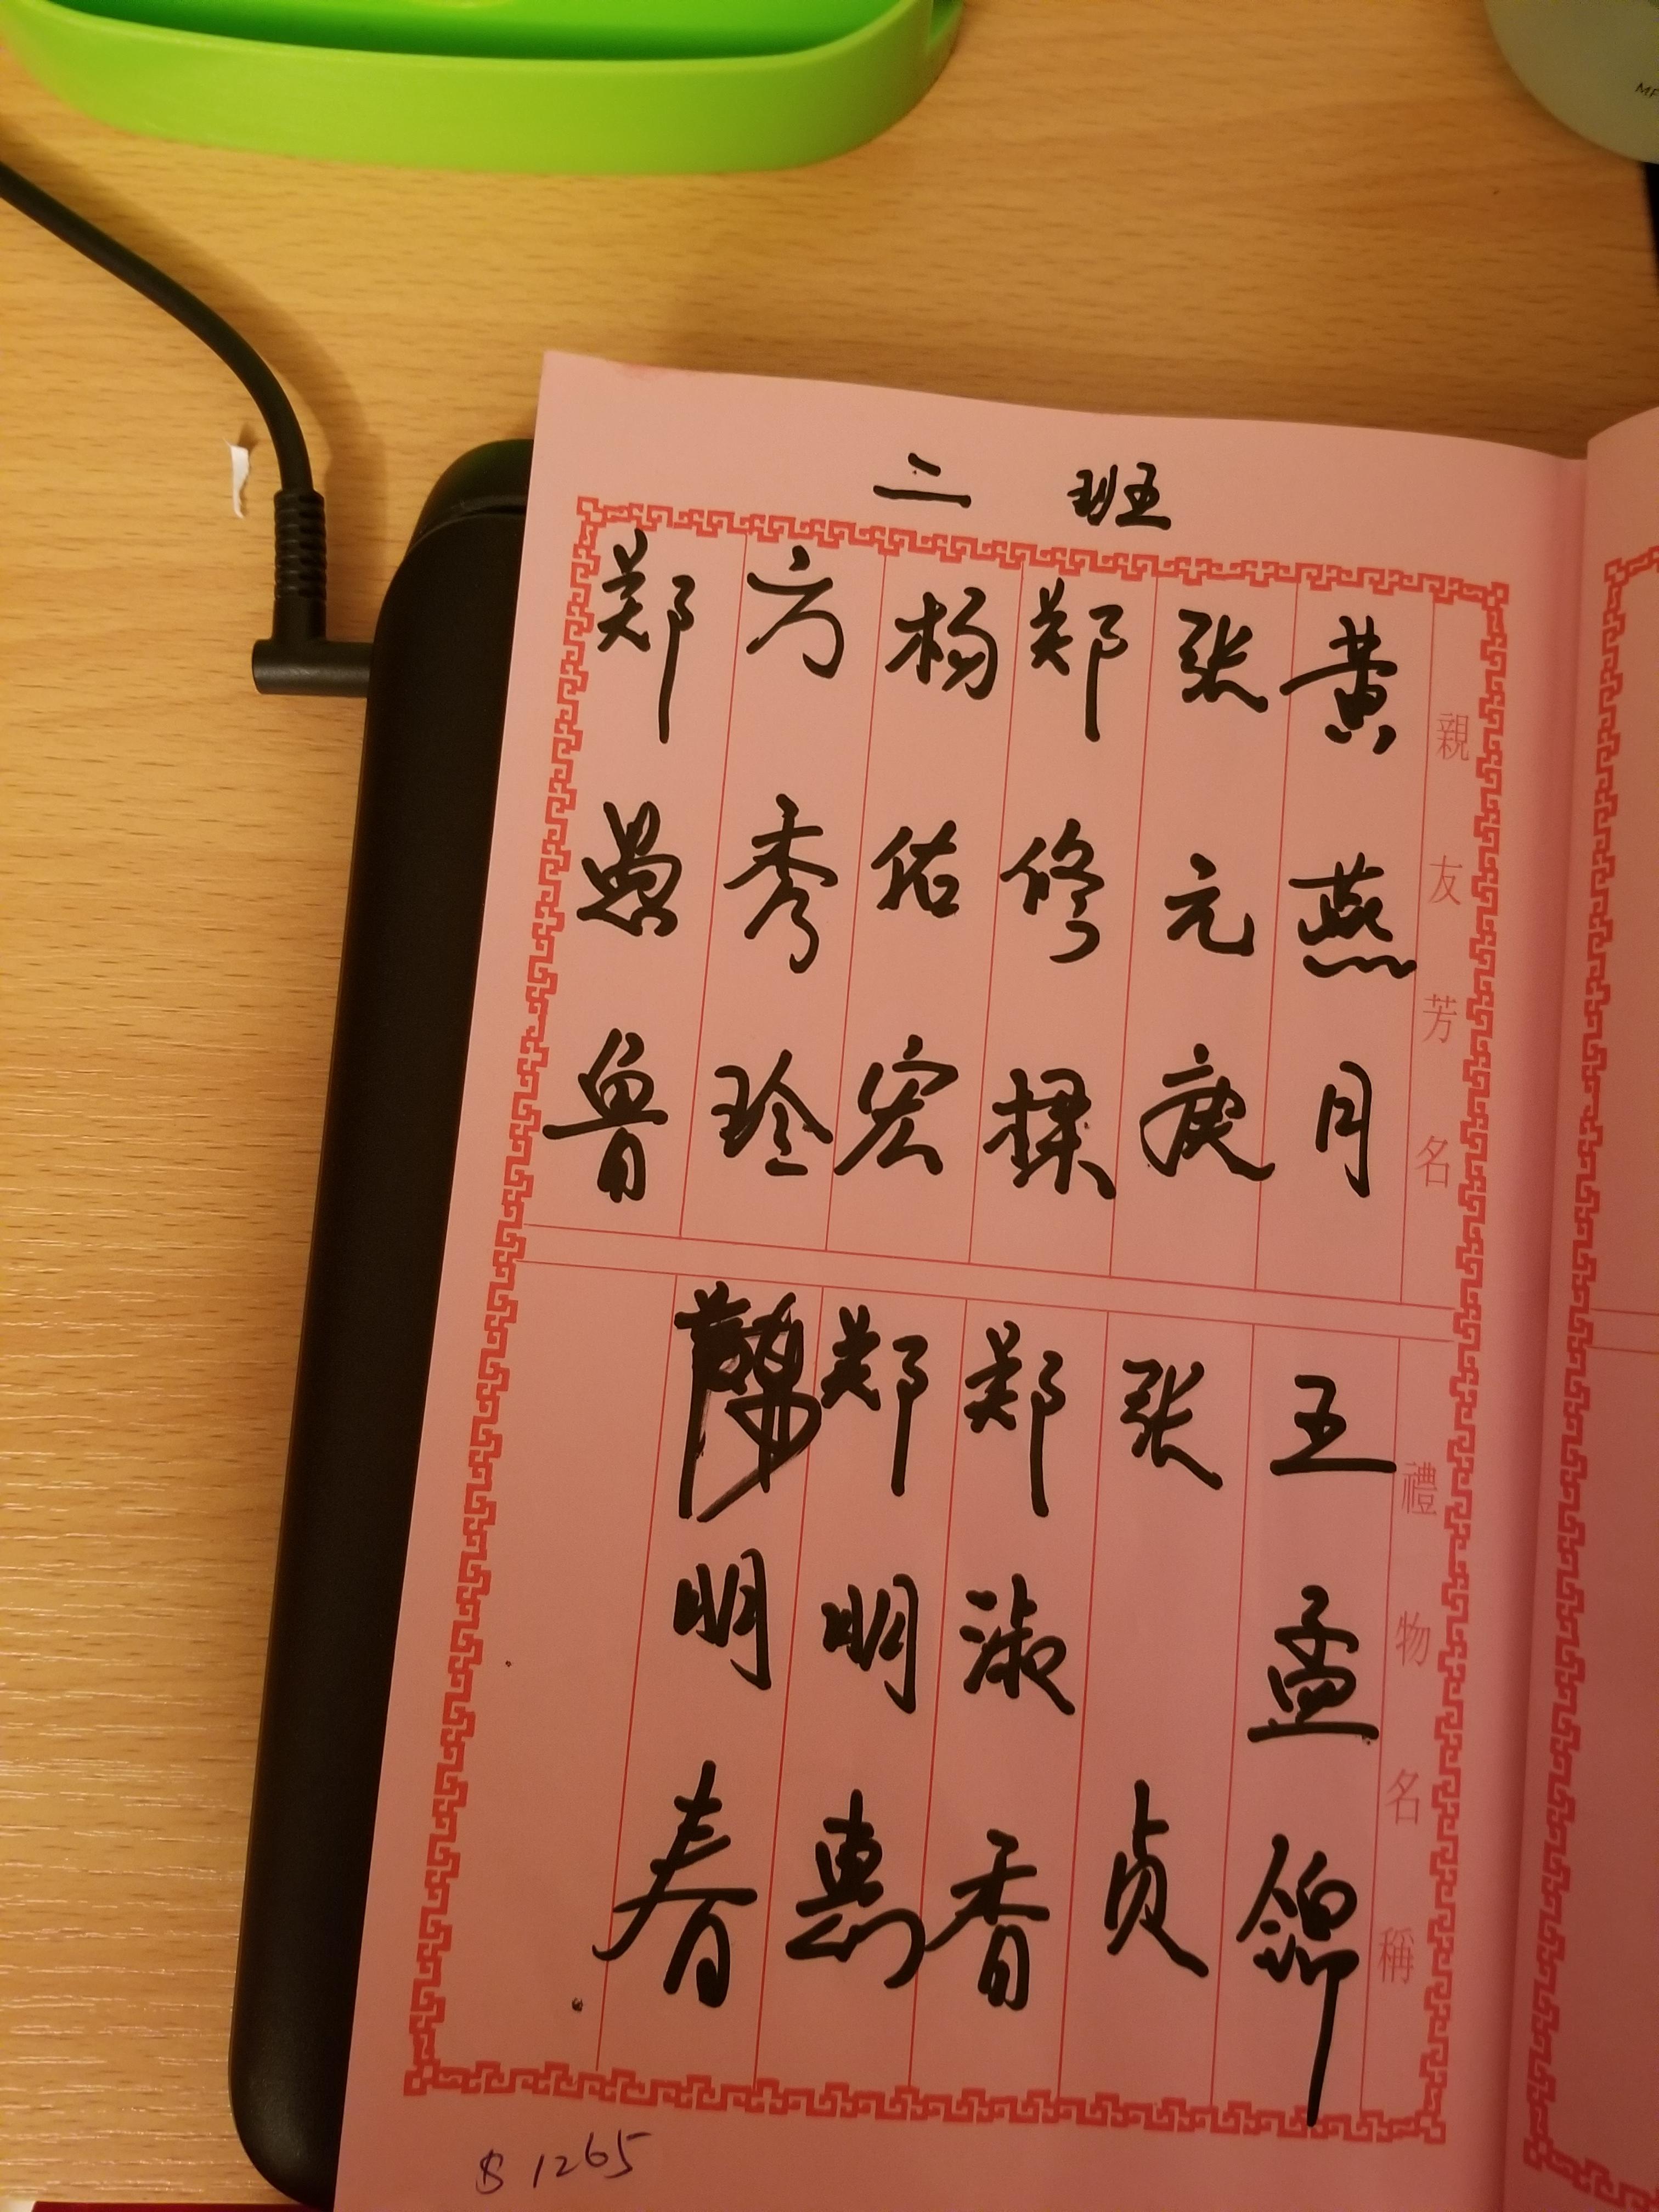 二班
親友芳名
黄燕月
张元庚
郑修樑
杨佑宏
方秀玲
郑愚鲁
禮物名稱
王孟锦
张贞
郑淑香
郑明惠
明春
1265